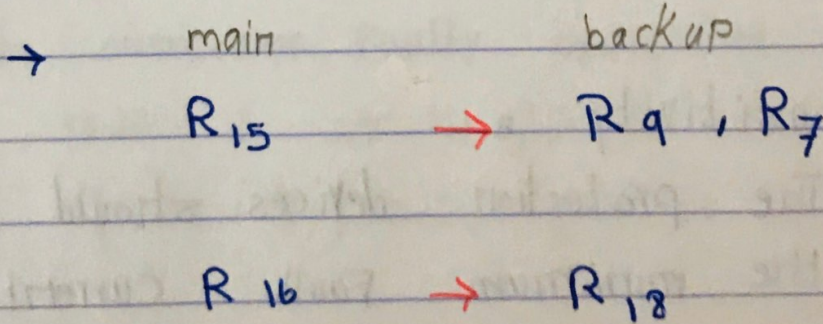 → main backup
R15 → R9 , R7
R16 → R18